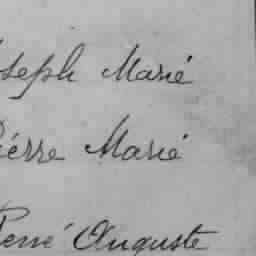 Joseph Marié
Piérre Marié
René Auguste